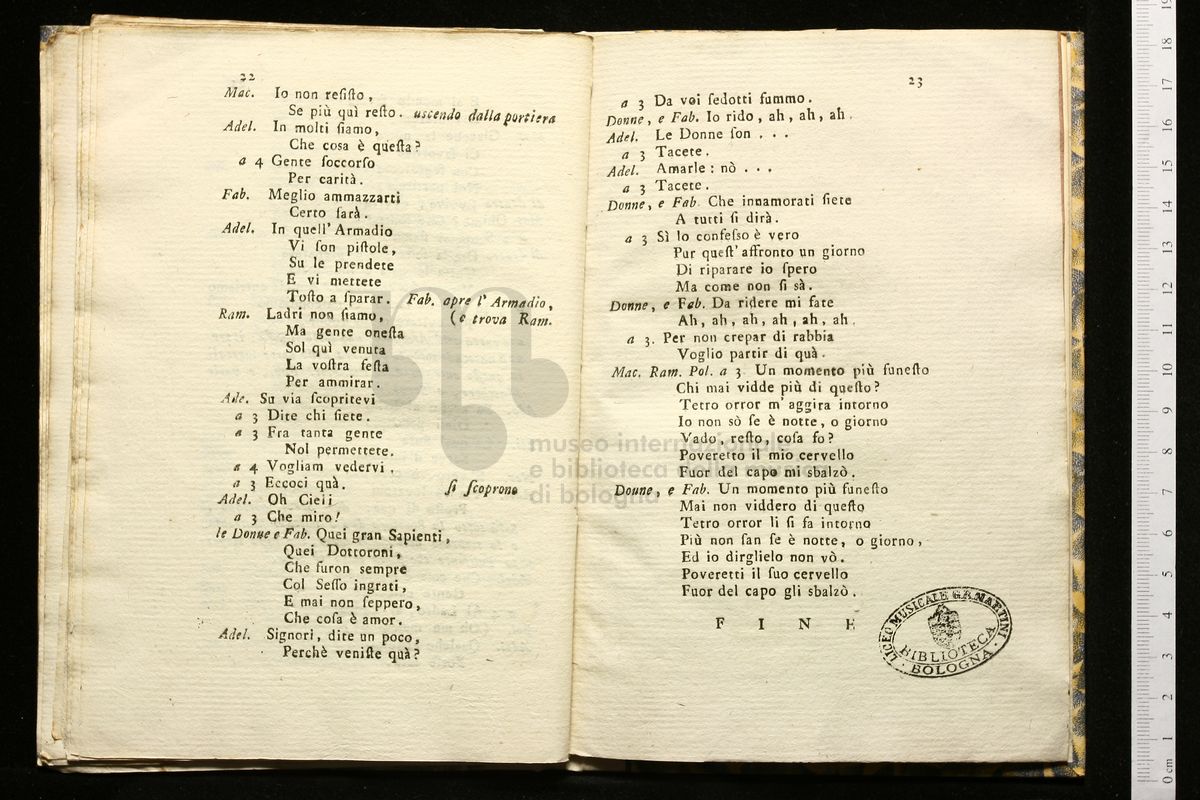 22
Mac. Io non reſiſto,
Se più quì reſto. uscendo dalla portiera
Adel. In molti ſiamo,
Che cosa è queſta?
a 4 Gente ſoccorſo
Per carità.
Fab. Meglio ammazzarti
Certo ſarà.
Adel. In quell' Armadio
Vi ſon piſtole,
Su le prendete
E vi mettete
Toſto a ſparar. Fab. apre l' Armadio,
Ram. Ladri non ſiamo, (e trova Ram.
Ma gente oneſta
Sol quì venuta
La voſtra feſta
Per ammirar.
Ade. Su via ſcopritevi
a 3 Dite chi ſiete.
a 3 Fra tanta gente
Nol permettete.
a 4 Vogliam vedervi.
a 3 Eccoci quà. ſi ſcoprono
Adel. Oh Cieli
a 3 Che miro!
le Donue e Fab. Quei gran Sapienti,
Quei Dottoroni,
Che furon sempre
Col Seſſo ingrati,
E mai non ſeppero,
Che coſa è amor.
Adel. Signori, dite un poco,
Perchè veniſte quà?
23
a 3 Da voi ſedotti fummo.
Donne, e Fab. Io rido, ah, ah, ah.
Adel. Le Donne ſon . . .
a 3 Tacete.
Adel. Amarle: nò . . .
a 3 Tacete.
Donne, e Fab. Che innamorati ſiete
A tutti ſi dirà.
a 3 Sì lo confeſso è vero
Pur queſt' affronto un giorno
Di riparare io ſpero
Ma come non ſi sà.
Donne, e Fab. Da ridere mi fate
Ah, ah, ah, ah, ah, ah.
a 3. Per non crepar di rabbia
Voglio partir di quà.
Mac. Ram. Pol. a 3 Un momento più funeſto
Chi mai vidde più di queſto?
Tetro orror m' aggira intorno
Io non sò ſe è notte, o giorno
Vado, reſto, coſa fo?
Poveretto il mio cervello
Fuor del capo mi sbalzò.
Doune, e Fab. Un momento più funeſto
Mai non viddero di queſto
Tetro orror li ſi fa intorno
Più non ſan ſe è notte, o giorno,
Ed io dirglielo non vò.
Poveretti il ſuo cervello
Fuor del capo gli sbalzò.
F I N E
LICEO MUSICALE G.B. MARTINI
BIBLIOTECA
BOLOGNA
museo internazionale
e biblioteca della musica
di bologna
0 cm 1 2 3 4 5 6 7 8 9 10 11 12 13 14 15 16 17 18 19